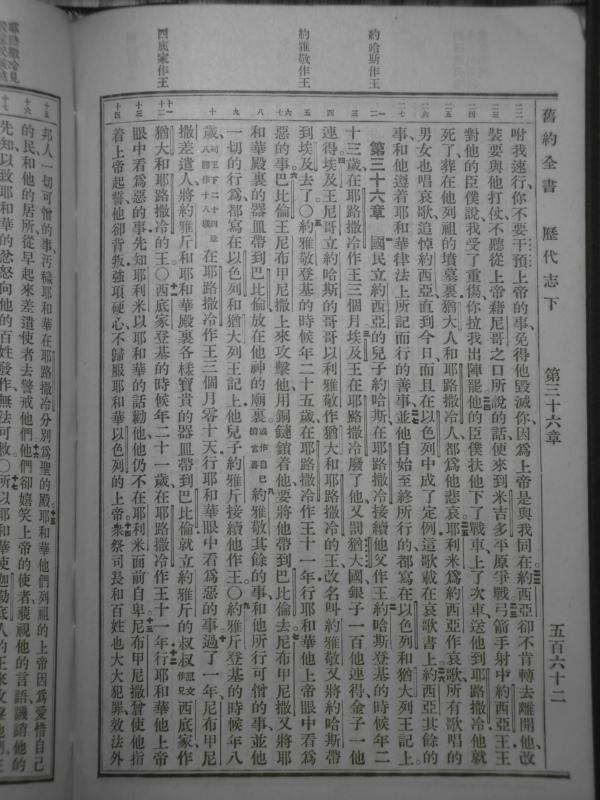 舊約全書 歷代志下 第三十六章 五百六十二
約哈斯作王
約雅敬作王
西底家作王
咐我速行你不要干預上帝的事免得他毀滅你因爲上帝是與我同在約西亞卻不肯轉去離開他改
裝要與他打仗不聽從上帝藉尼哥之口所說的話便來到米吉多平原爭戰弓箭手射中約西亞王王
對他的臣僕說我受了重傷你拉我出陣罷他的臣僕扶他下了戰車上了次車送他到耶路撒冷他就
死了葬在他列祖的墳墓裏猶大人和耶路撒冷人都爲他悲哀耶利米爲約西亞作哀歌所有歌唱的
男女也唱哀歌追悼約西亞直到今日而且在以色列中成了定例這歌載在哀歌書上約西亞其餘的
事和他遵着耶和華律法上所記而行的善事並他自始至終所行的都寫在以色列和猶大列王記上
第三十六章 國民立約西亞的兒子約哈斯在耶路撒冷接續他父作王約哈斯登基的時候年二
十三歲在耶路撒冷作王三個月埃及王在耶路撒冷廢了他又罰猶大國銀子一百他連得金子一他
連得埃及王尼哥立約哈斯的哥哥以利雅敬作猶大和耶路撒冷的王改名叫約雅敬又將約哈斯帶
到埃及去了〇約雅敬登基的時候年二十五歲在耶路撒冷作王十一年行耶和華他上帝眼中看爲
惡的事巴比倫王尼布甲尼撒上來攻擊他用銅鏈鎖着他要將他帶到巴比倫去尼布甲尼撒又將耶
和華殿裏的器皿帶到巴比倫放在他神的廟裏或作自己的宮裏約雅敬其餘的事和他所行可憎的事並他
一切的行爲都寫在以色列和猶大列王記上他兒子約雅斤接續他作王〇約雅斤登基的時候年八
歲列王下二十四章八節作十八歲在耶路撒冷作王三個月零十天行耶和華眼中看爲惡的事過了一年尼布甲尼
撒差遣人將約雅斤和耶和華殿裏各樣寶貴的器皿帶到巴比倫就立約雅斤的叔叔原文作兄西底家作
猶大和耶路撒冷的王〇西底家登基的時候年二十一歲在耶路撒冷作王十一年行耶和華他上帝
眼中看爲惡的事先知耶利米以耶和華的話勸他他仍不在耶利米面前自卑尼布甲尼撒曾使他指
着上帝起誓他卻背叛強項硬心不歸服耶和華以色列的上帝衆祭司長和百姓也大大犯罪效法外
邦人一切可憎的事污穢耶和華在耶路撒冷分別爲聖的殿耶和華他們列祖的上帝因爲愛惜自己
的民和他的居所從早起來差遣使者去警戒他們他們卻嬉笑上帝的使者藐視他的言語譏誚他的
先知以致耶和華的忿怒向他的百姓發作無法可救〇所以耶和華使迦勒底人的王來攻擊他們